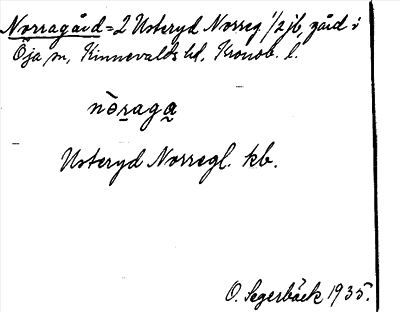 Norragård = 2 Usteryd Norreg 1/2 jb, gård i
Öja sn, Kinnevalds hd, Kronob. l.
nòraga
Usteryd Norregl. kb.
O. Segerbäck 1935.